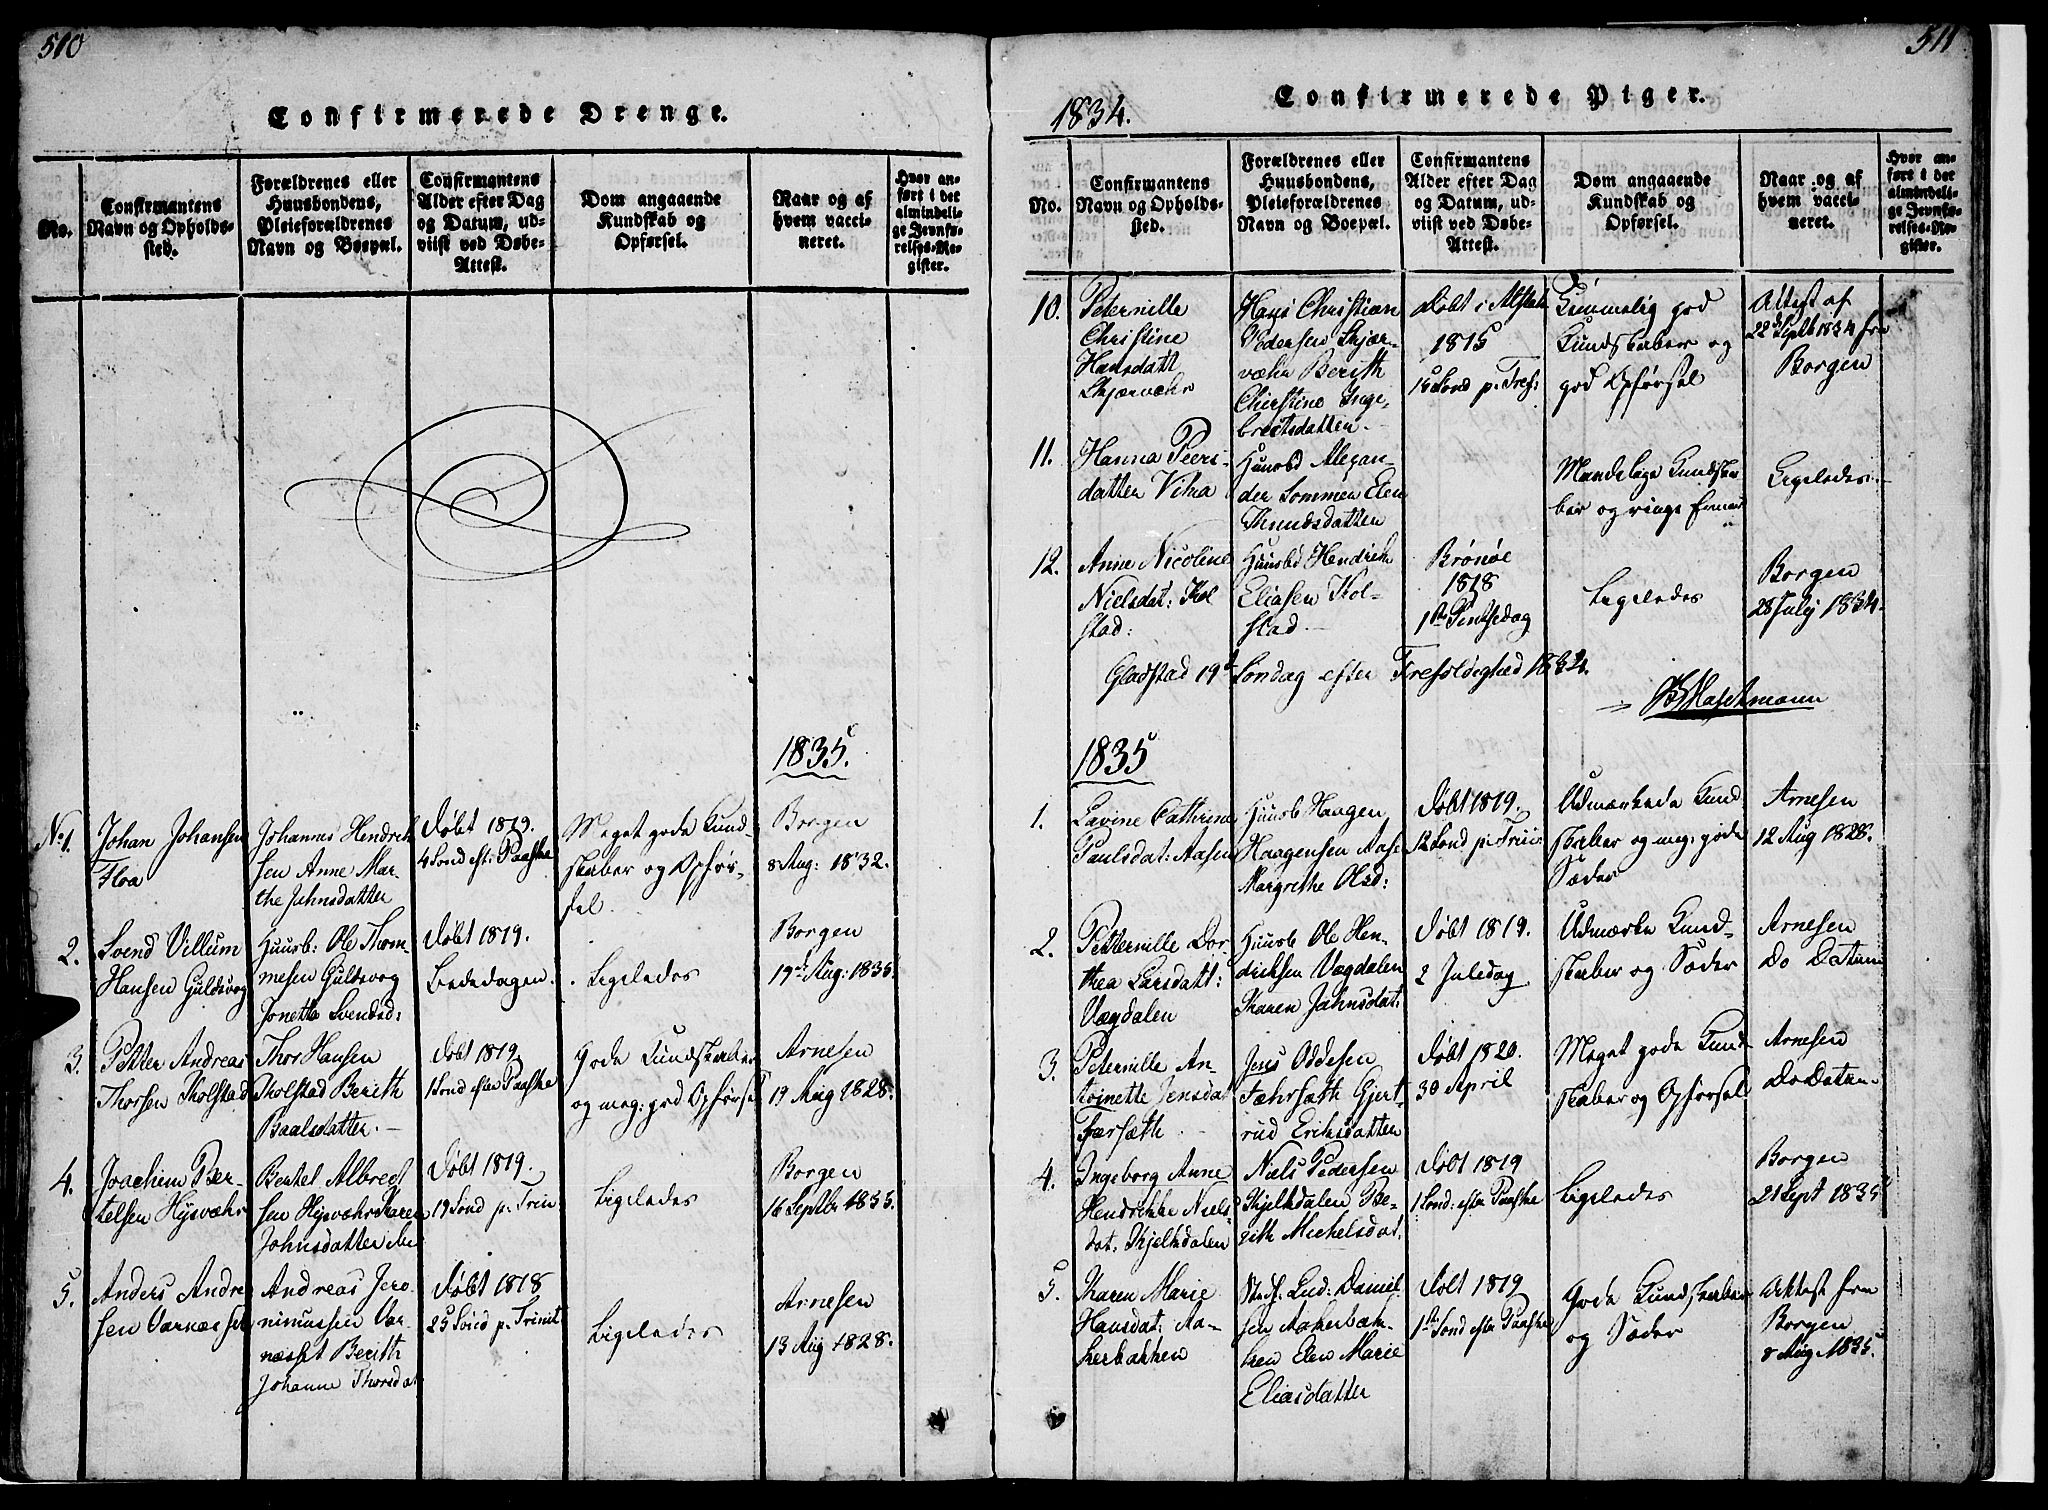 510
Confirmerede Drenge.
No.
Confirmantens
Navn og Opholds-
sted.
Forældrenes eller
Huusbondens,
Pleieforældrenes
Navn og Boepæl.
Confirmantens
Alder efter Dag
og Datum, ud-
viist ved Døbe-
Attest.
Dom angaaende
Kundskab og
Opførsel.
Naar og af
hvem vacci-
neret.
Hvor an-
ført i det
almindeli-
ge Jevnfø-
relses-Re-
gister.
1835.
No 1.
Johan Johansen
Floa
Johannes Hendrik
sen Anne Mar-
the Jahnsdatter
Døbt 1819.
4 Sond eft: Paaske
Meget gode Kund
skaber og Opfør-
sel.
Borgen
8 Aug: 1832.
2.
Svend Villum
Hansen Guldsvog
Huusb: Ole Thom-
mesen Guldsvog
Jonetta Svendsd:
Døbt 1819.
Bededagen.
Ligeledes
Borgen
19de Aug: 1835.
3.
Petter Andreas
Thorsen Kolstad
Thor Hansen
Kolstad Berith
Baalsdatter.
Døbt 1819
1 Sond efter Paaske
Gode Kundskaber
og meg: god Opførsel
Arnesen
19 Aug 1828.
4.
Joachim Ber-
telsen Hysvæhr
Bentel Albrect
sen Hysvæhr Karen
Johnsdatter
Døbt 1819.
19 Sond p. Trin:
Ligeledes
Borgen
16 Septbr 1833.
5.
Anders Andre
sen Varnæsset
Andreas Jero
nimussen Var-
næsset Berith
Johanne Thorsdat
Døbt 1818
25 Sond p. Trinit
Ligeledes
Arnesen
13 Aug 1828.
511
1834.
Confirmerede Piger.
No.
Confirmantens
Navn og Opholds-
sted.
Forældrenes eller
Huusbondens,
Pleieforældrenes
Navn og Boepæl.
Confirmantens
Alder efter Dag
og Datum, ud-
viist ved Døbe-
Attest.
Dom angaaende
Kundskab og
Opførsel.
Naar og af
hvem vacci-
neret.
Hvor an-
ført i det
almindeli-
ge Jevnfø-
relses-Re-
gister.
10.
Peternille
Christine
Hansdatt
Skjærvæhr
Hans Christian
Pedersen Skjær-
væhr Berith
Chierstine Inge-
breitsdatter.
Døbt i Alstah
1815
16 Sond p. Tref:
Temmelig god
Kundskaber og
god Opførsel
Attest af
22d Septb 1834 fra
Borgen
11.
Hanna Peers-
datter Vikna
Huusbd Alexan-
der Sommer Elen
Knudsdatter
Maadelige Kundska
ber og ringe
Ligeledes
12.
Anne Nicoline
Nielsdat: Kol
stad:
Huusbd Hendrik
Eliasen Kol-
stad
Brønøe
1818
1ste Pintsedag
Ligeledes
Borgen
28 July 1834.
Gladstad 19d Søndag efter Trefoldighed 1834.
Maschmann
1835
1.
Lavine Cathrine
Paulsdat: Aasen
Huusb Haagen
Haagensen Aase
Margrethe Olsd:
Døbt 1819.
12 Sond p. Trin:
Udmærkede Kund
skaber og meg: gode
Sæder
Arnesen
12 Aug 1828.
2.
Petternille Dor
thea Larsdatt:
Vægdalen
Huusb Ole Hen-
driksen Vægdalen
Karen Jahnsdat:
Døbt 1819.
2 Juledag
Udmærke Kund-
skaber og Sæder
Arnesen
Do Datum
3.
Peternille An-
toinette Jensdat
Færsæth
Jens Oddesen
Fæhrsæth Gjert-
rud Eriksdatter
Døbt 1820.
30 April
Meget gode Kund
skaber og Opførsel
Arnesen
Do Datum
4.
Ingeborg Anne
Hendrikke Niels
dat. Kjelkdalen
Niels Pedersen
Kjelkdalen Be-
rith Michelsdat.
Døbt 1819
1 Sond: efter Paaske
Ligeledes
Borgen
21 Sept 1835
5.
Karen Marie
Hansdat: Aa-
kerbakken
Stedf. Lud: Daniel
sen Aakerbak-
ken Elen Marie
Eliasdatter
Døbt 1819
1ste Sond efter Paaske
Gode Kundskaber
og Sæder
Attest fra
Borgen
8 Aug. 1835.